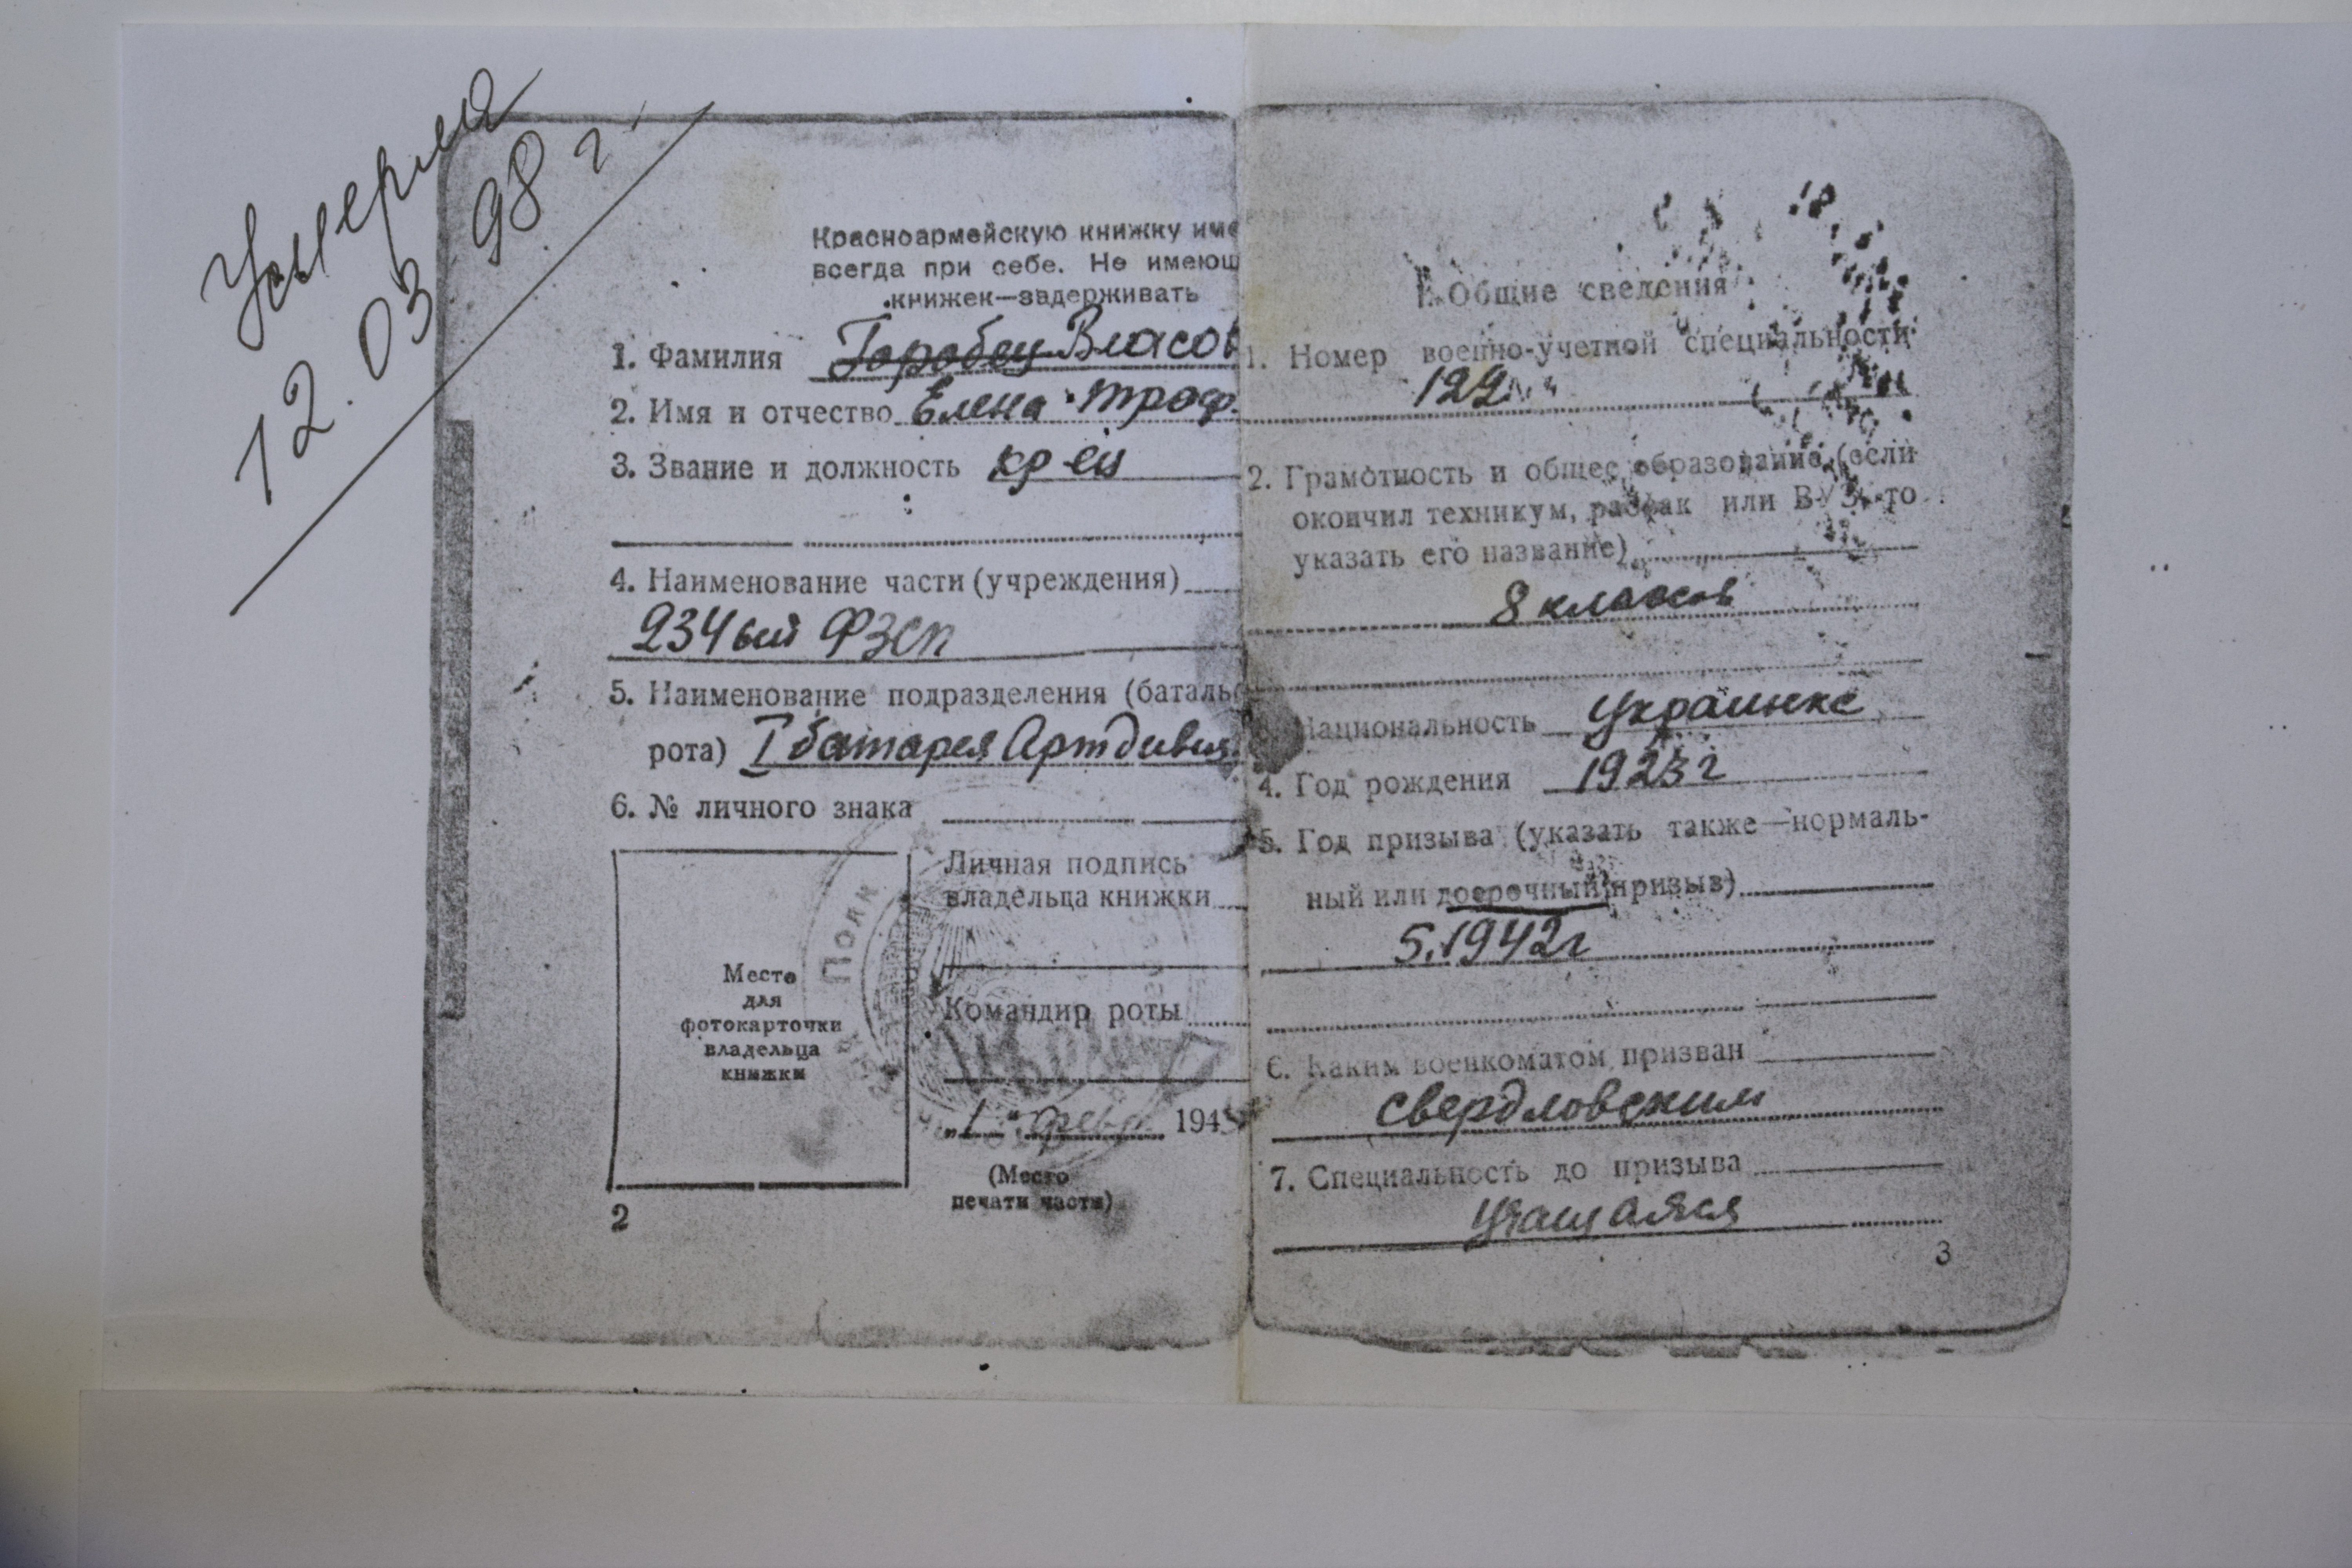 Умерла
12.03 98 г.
Красноармейскую книжку име
всегда при себе. Не имеющ
книжек—задерживать
1. Фамилия Горобец Власов
2. Имя и отчество Елена Троф.
3. Звание и должность кр-ец
4. Наименование части (учреждения)
234ый ФЗСП
5. Наименование подразделения (батальо
рота) I батарея Артдивиз.
6. № личного знака
Место
для
фотокарточки
владельца
книжки
Личная подпись
владельца книжки
Полк
Командир роты
„1" февр. 1945
(Место
печати части)
2
I. Общие сведения
1. Номер военно-учетной специальности
122
2. Грамотность и общее образование (если
окончил техникум, рабфак или ВУЗ, то
указать его название)
8 классов
Национальность украинка
4. Год рождения 1923 г
5. Год призыва (указать также—нормаль-
ный или досрочный призыв)
5.1942г
6. Каким военкоматом призван
Свердловским
7. Специальность до призыва
Учащаяся
3